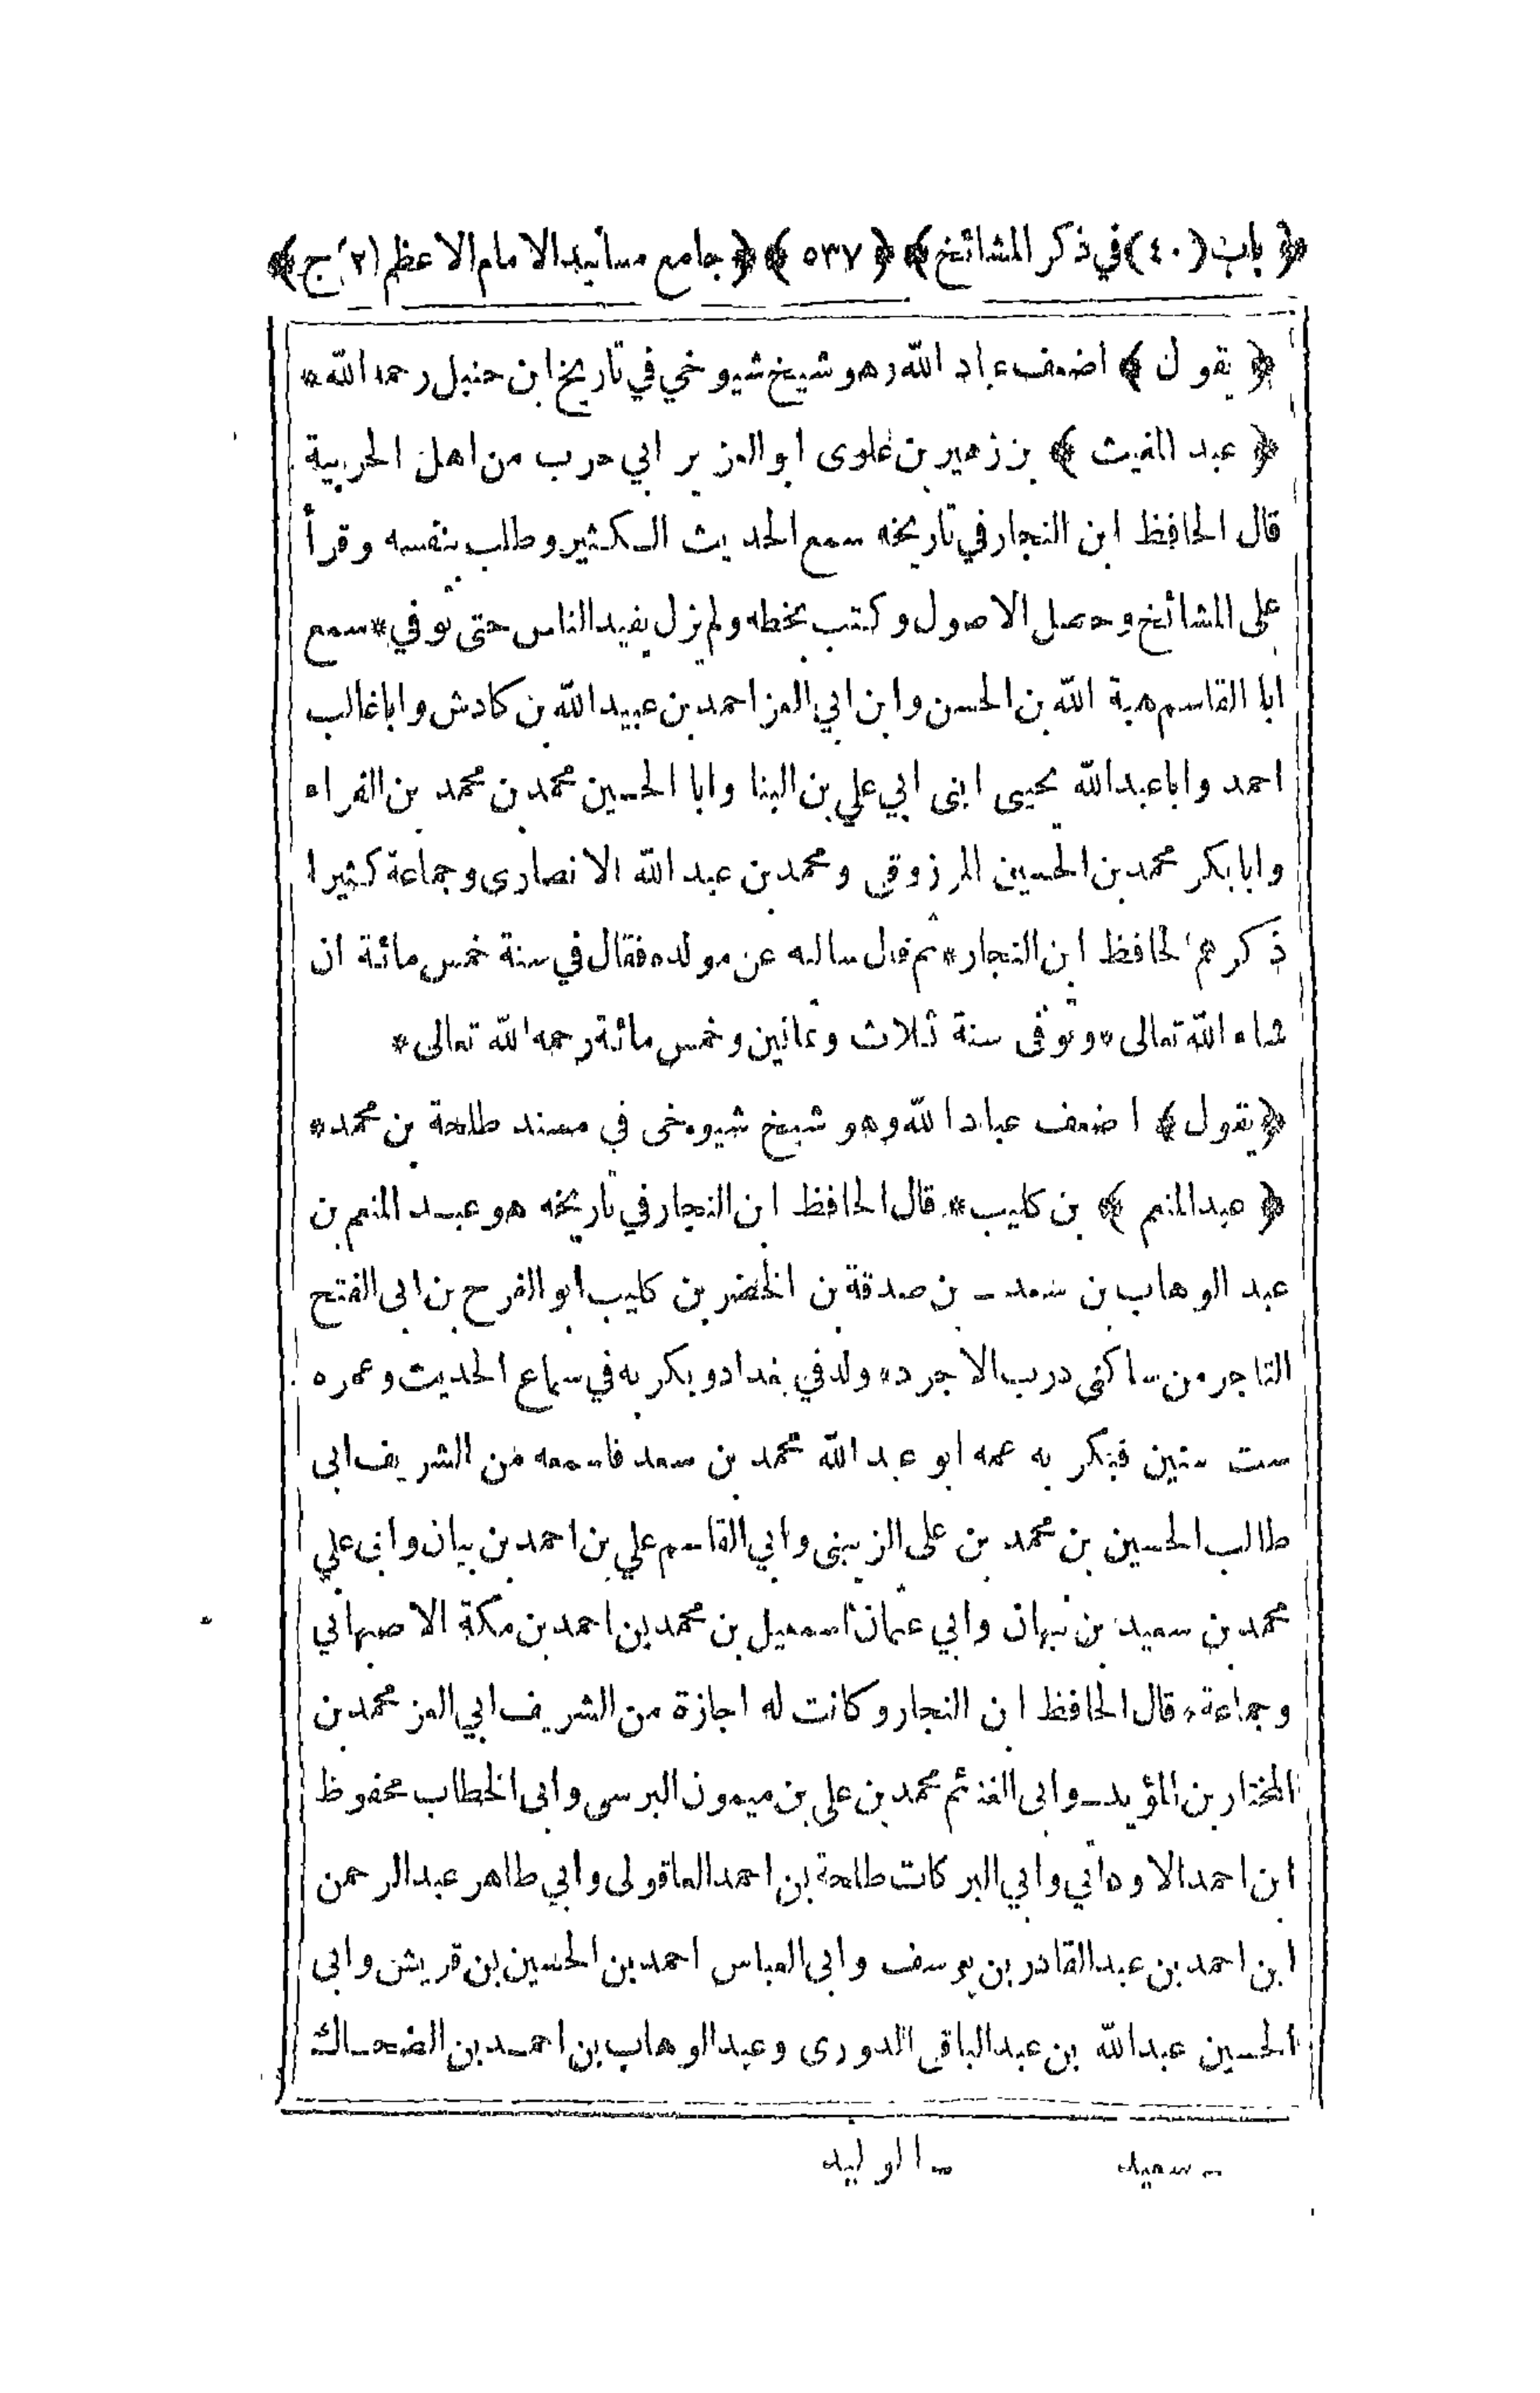 ﴿ باب (٤٠) في ذكر المشائخ ﴾ ﴿ ٥٣٧ ﴾ ﴿ جامع مسانيد الامام الاعظم (٢) ج ﴾
﴿ يقول ﴾ اضعف عباد الله وهو شيخ شيوخي في تاريخ ابن حنبل رحمه الله *
﴿ عبد المغيث ﴾ بن زهير بن علوى ابو العز بن ابي حرب من اهل الحربية
قال الحافظ ابن النجار في تاريخه سمع الحديث الكثير وطلب بنفسه وقرأ
على المشائخ وحصل الاصول وكتب بخطه ولم يزل يفيد الناس حتى توفي * سمع
ابا القاسم هبة الله بن الحسن وابن ابي العز احمد بن عبيد الله بن كادش وابا غالب
احمد وابا عبد الله يحيى ابنى ابي علي بن البنا وابا الحسين محمد بن محمد بن الفراء
وابا بكر محمد بن الحسين المرزوقى ومحمد بن عبد الله الانصارى وجماعة كثيرا
ذكرهم الحافظ ابن النجار * ثم قال سالته عن مولده فقال في سنة خمس مائة ان
شاء الله تعالى * وتوفى سنة ثلاث وثمانين وخمس مائة رحمه الله تعالى *
﴿ يقول ﴾ اضعف عباد الله وهو شيخ شيوخى في مسند طلحة بن محمد *
﴿ عبد المنعم ﴾ بن كليب * قال الحافظ ابن النجار في تاريخه هو عبد المنعم بن
عبد الوهاب بن سعد ـ بن صدقة بن الخضر بن كليب ابو الفرح بن ابى الفتح
التاجر من ساكنى درب الاجرد * ولد في بغداد وبكر به في سماع الحديث وعمره
ست سنين فبكر به عمه ابو عبد الله محمد بن سعد فاسمعه من الشريف ابى
طالب الحسين بن محمد بن على الزينبى وابي القاسم علي بن احمد بن بيان وابى علي
محمد بن سعيد بن نبهان وابي عثمان اسمعيل بن محمد بن احمد بن مكة الاصبهاني
وجماعة * قال الحافظ ابن النجار وكانت له اجازة من الشريف ابي العز محمد بن
المختار بن المؤيد ـ وابى الغنائم محمد بن على بن ميمون البرسى وابى الخطاب محفوظ
ابن احمد وابي البركات طلحة بن احمد العاقولى وابي طاهر عبد الرحمن
ابن احمد بن عبد القادر بن يوسف وابى العباس احمد بن الحسين بن قريش وابى
الحسين عبد الله بن عبد الباقى الدورى وعبد الوهاب بن احمد بن الضحاك
ـ سعيد ـ الوليد